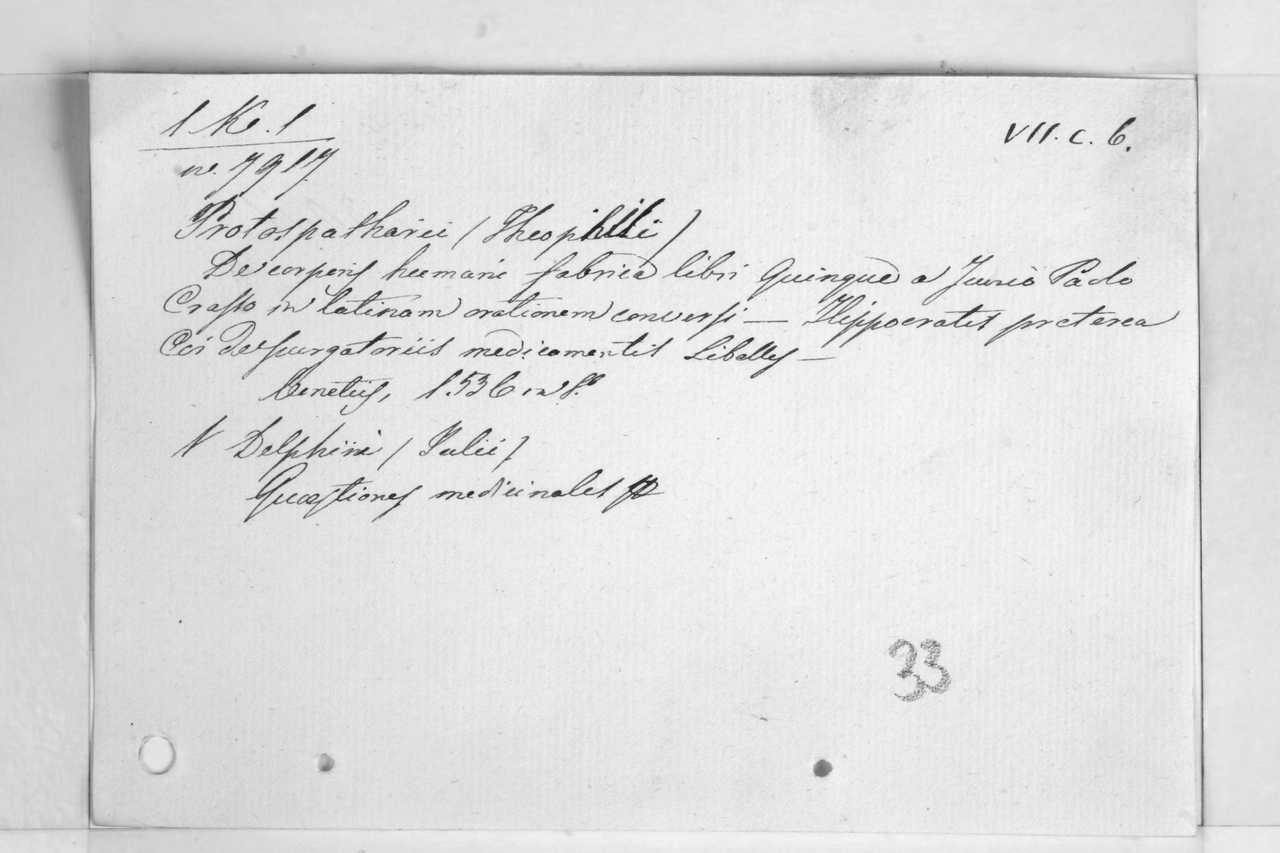 1 K. 1
VII. c. 6.
no. 7917
Protospatharii (Theophili)
De corporis humani fabrica libri Quinque a Junio Paolo
Crasso in latinam orationem conversi — Hippocratis preterea
Coi de purgatoriis medicamentis Libellus —
Venetiis, 1536 in 8.º
Delphini (Julii)
Quæstiones medicinales
33